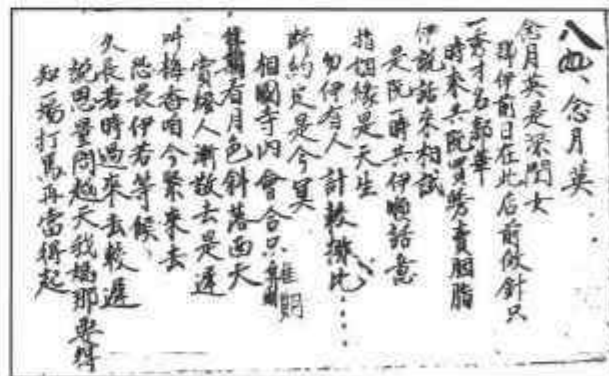 八四、念月英
念月英是深閨女
歸伊前日在此后前做針只
一秀才名郭華
時來共阮買劳賣胭脂
伊說話來相試
是阮一時共伊順話意
指姻緣是天生
勿伊有人計較撒比
断約定是今冥
相國寺內會合只佳期
看月色斜落西天
賞燈人漸散去是遲
叫梅香咱今緊來去
恐畏伊若等候
久長若時過來去較遲
說思量問越天我媽那卑得
知一場打馬再當得起